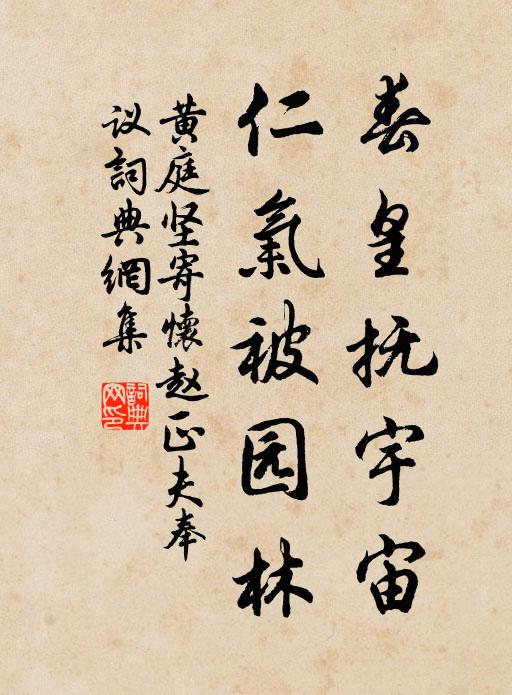 春皇抚宇宙
仁氣被园林
黄庭坚寄懷赵正夫奉
议詞典網集
詞典网印